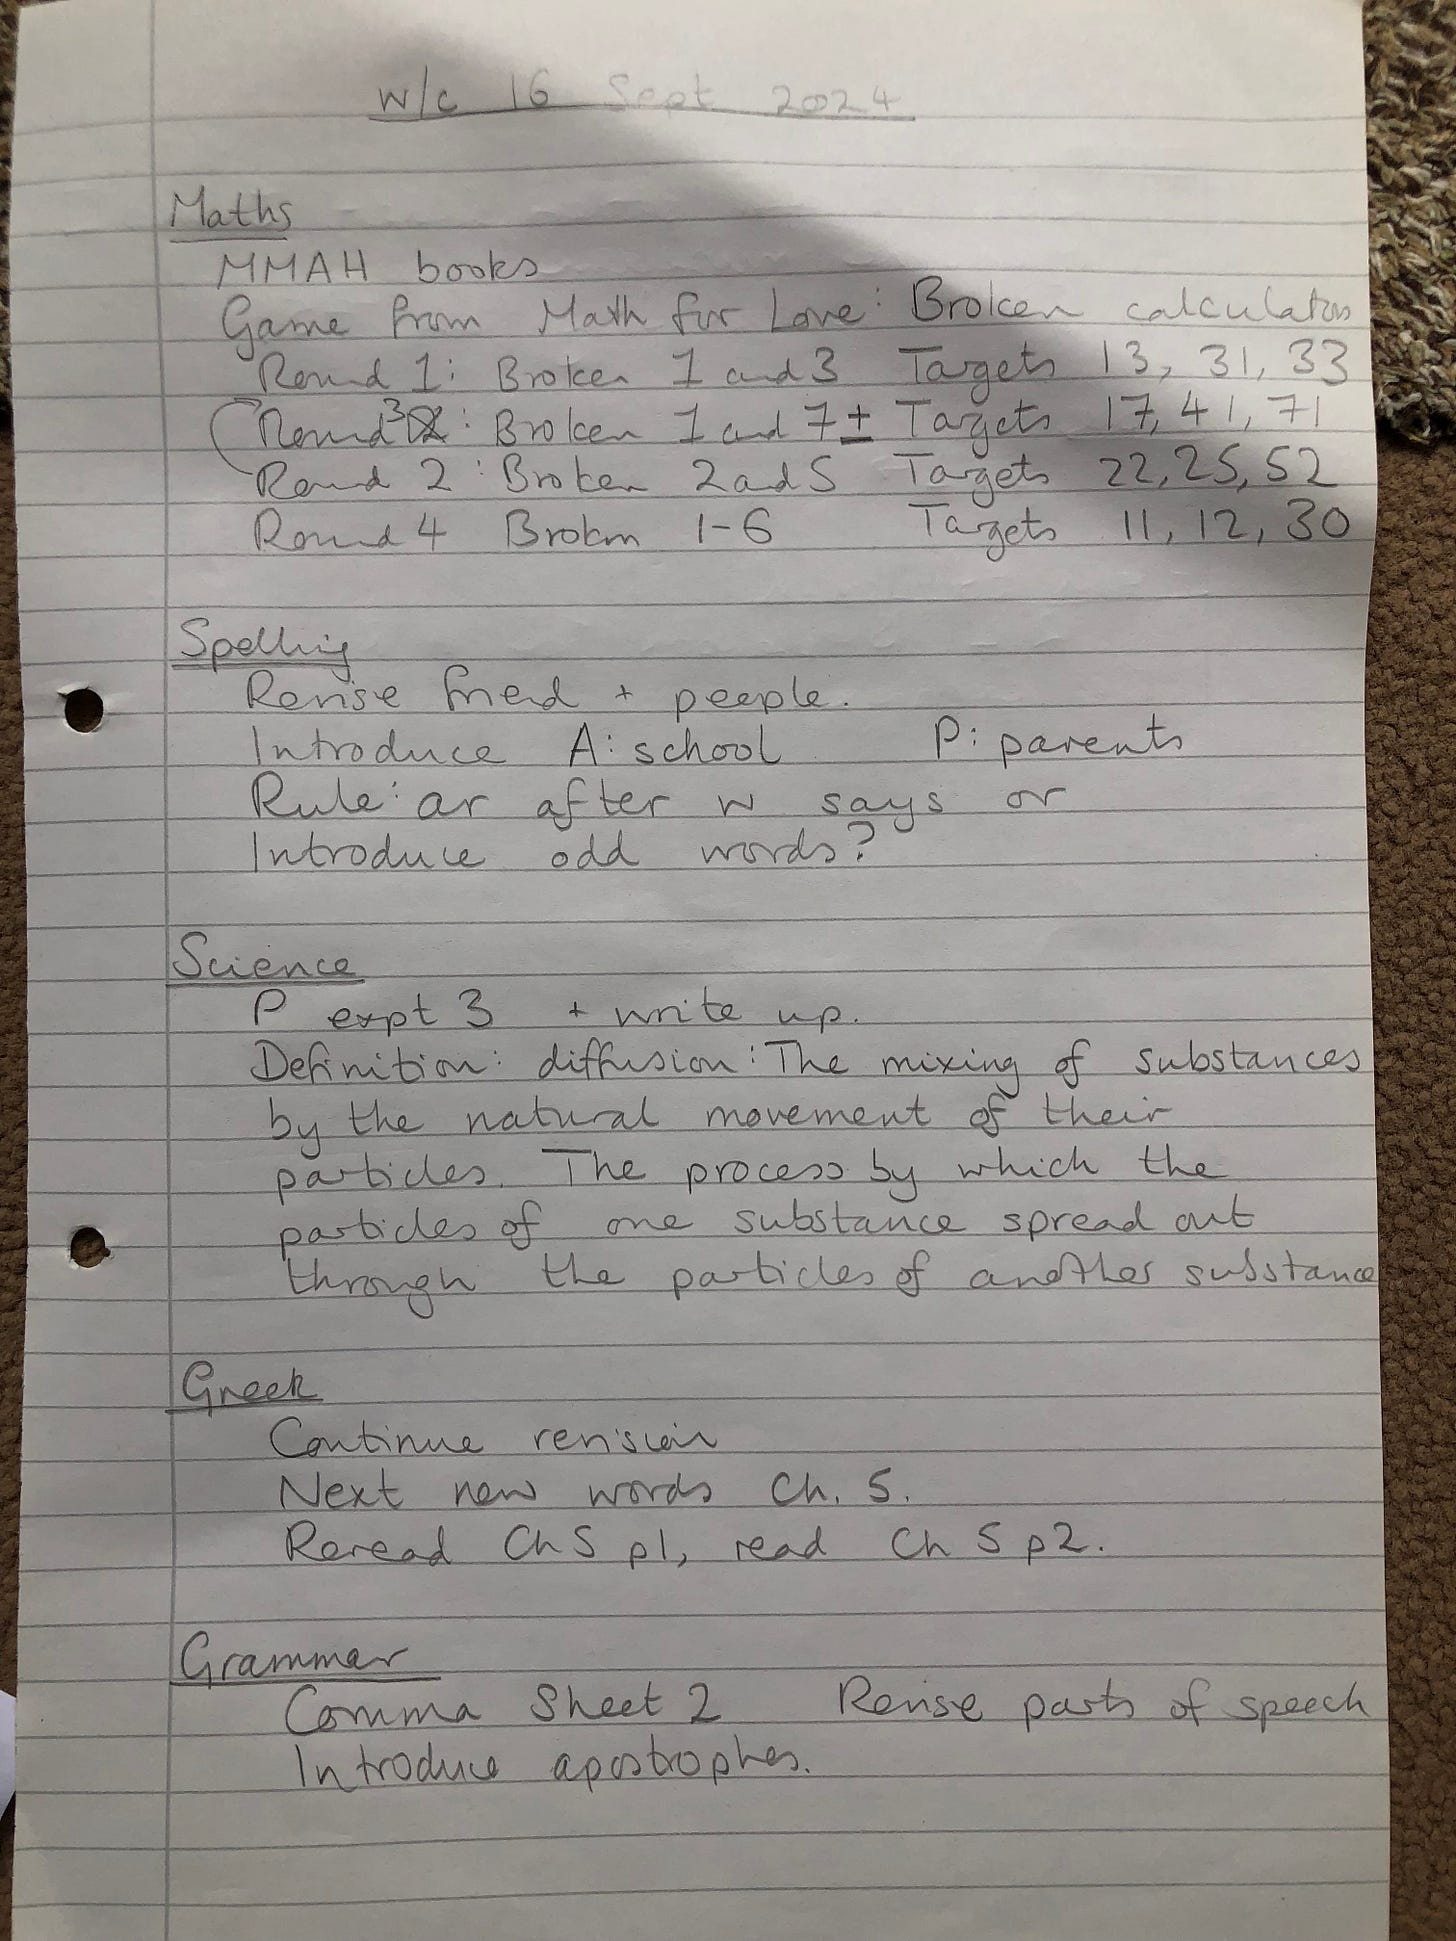 w/c 16 Sept 2024
Maths
MMAH books
Game from Math for Love: Broken calculators
Round 1: Broken 1 and 3 Targets 13, 31, 33
Round 3: Broken 1 and 7 ± Targets 17, 41, 71
Round 2: Broken 2 and 5 Targets 22, 25, 52
Round 4 Broken 1-6 Targets 11, 12, 30
Spelling
Revise friend + people.
Introduce A: school P: parents
Rule: ar after w says or
Introduce odd words?
Science
P expt 3 + write up.
Definition: diffusion: The mixing of substances
by the natural movement of their
particles. The process by which the
particles of one substance spread out
through the particles of another substance
Greek
Continue revision
Next new words Ch. 5.
Reread Ch 5 p1, read Ch 5 p2.
Grammar
Comma Sheet 2 Revise parts of speech
Introduce apostrophes.